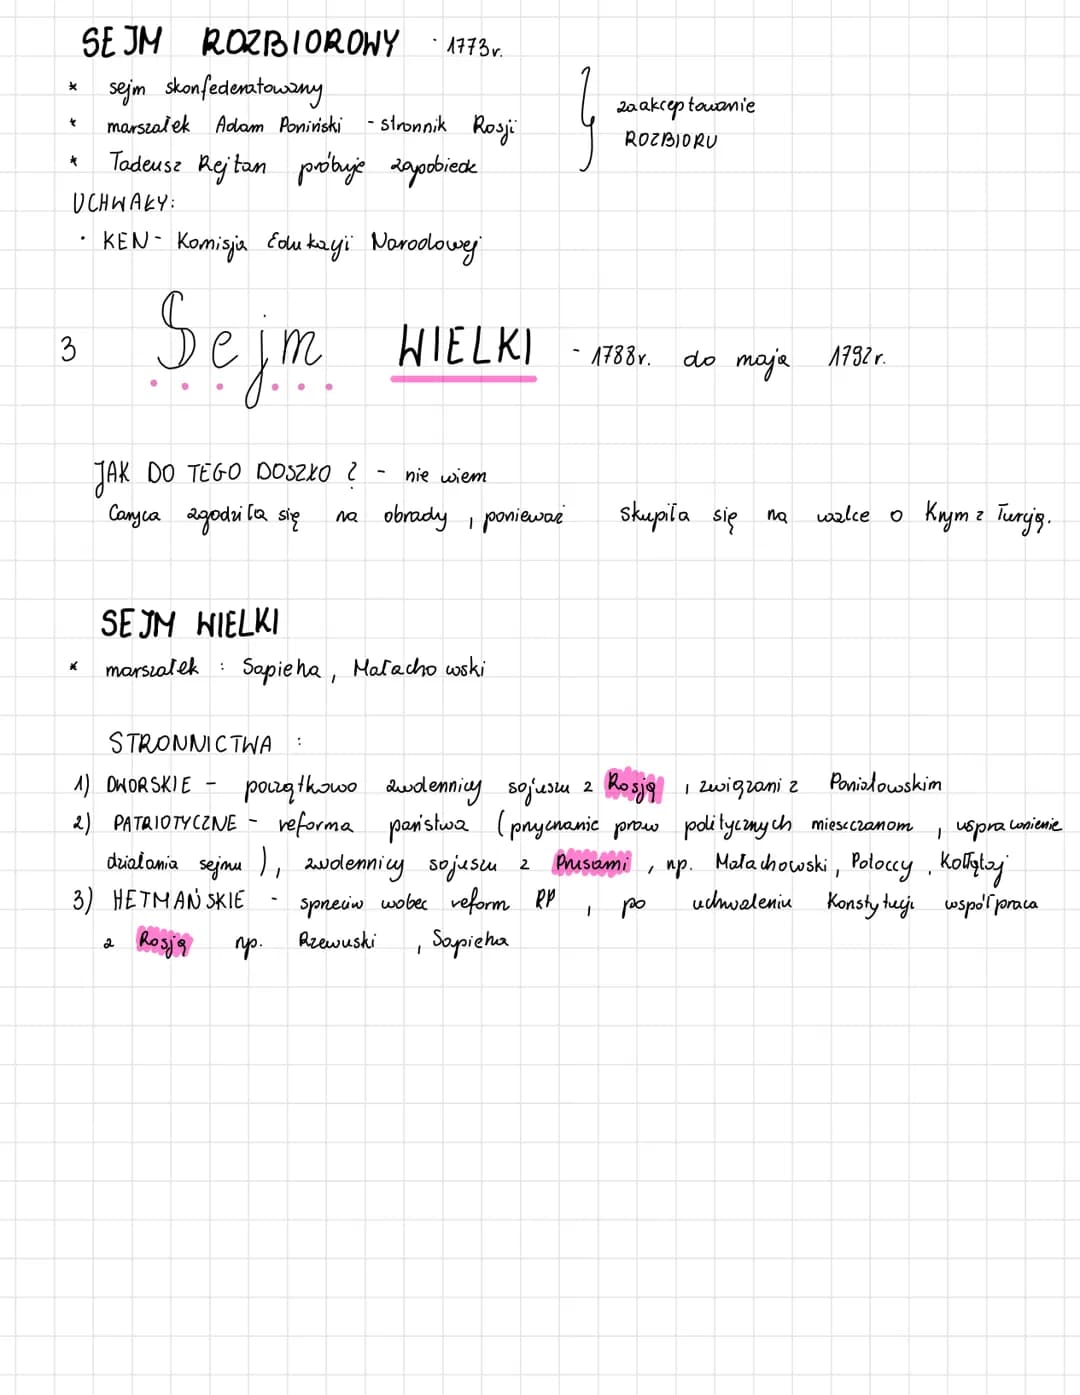 SEJM ROZBIOROWY - 1773r.
* sejm skonfederatowany
* marszałek Adam Poniński - stronnik Rosji
* Tadeusz Rejtan próbuje zapobiec
zaakceptowanie
ROZBIORU
UCHWAŁY:
• KEN - Komisja Edukacji Narodowej
3 Sejm WIELKI - 1788r. do maja 1792r.
JAK DO TEGO DOSZŁO? - nie wiem
Caryca zgodziła się na obrady, ponieważ skupiła się na walce o Krym z Turcją.
SEJM WIELKI
* marszałek: Sapieha, Małachowski
STRONNICTWA:
1) DWORSKIE - początkowo zwolennicy sojuszu z Rosją, związani z Poniatowskim
2) PATRIOTYCZNE - reforma państwa (przyznanie praw politycznych mieszczanom, usprawnienie
działania sejmu), zwolennicy sojuszu z Prusami, np. Małachowski, Potoccy, Kołłątaj
3) HETMAŃSKIE - sprzeciw wobec reform RP, po uchwaleniu Konstytucji współpraca
z Rosją np. Rzewuski, Sapieha